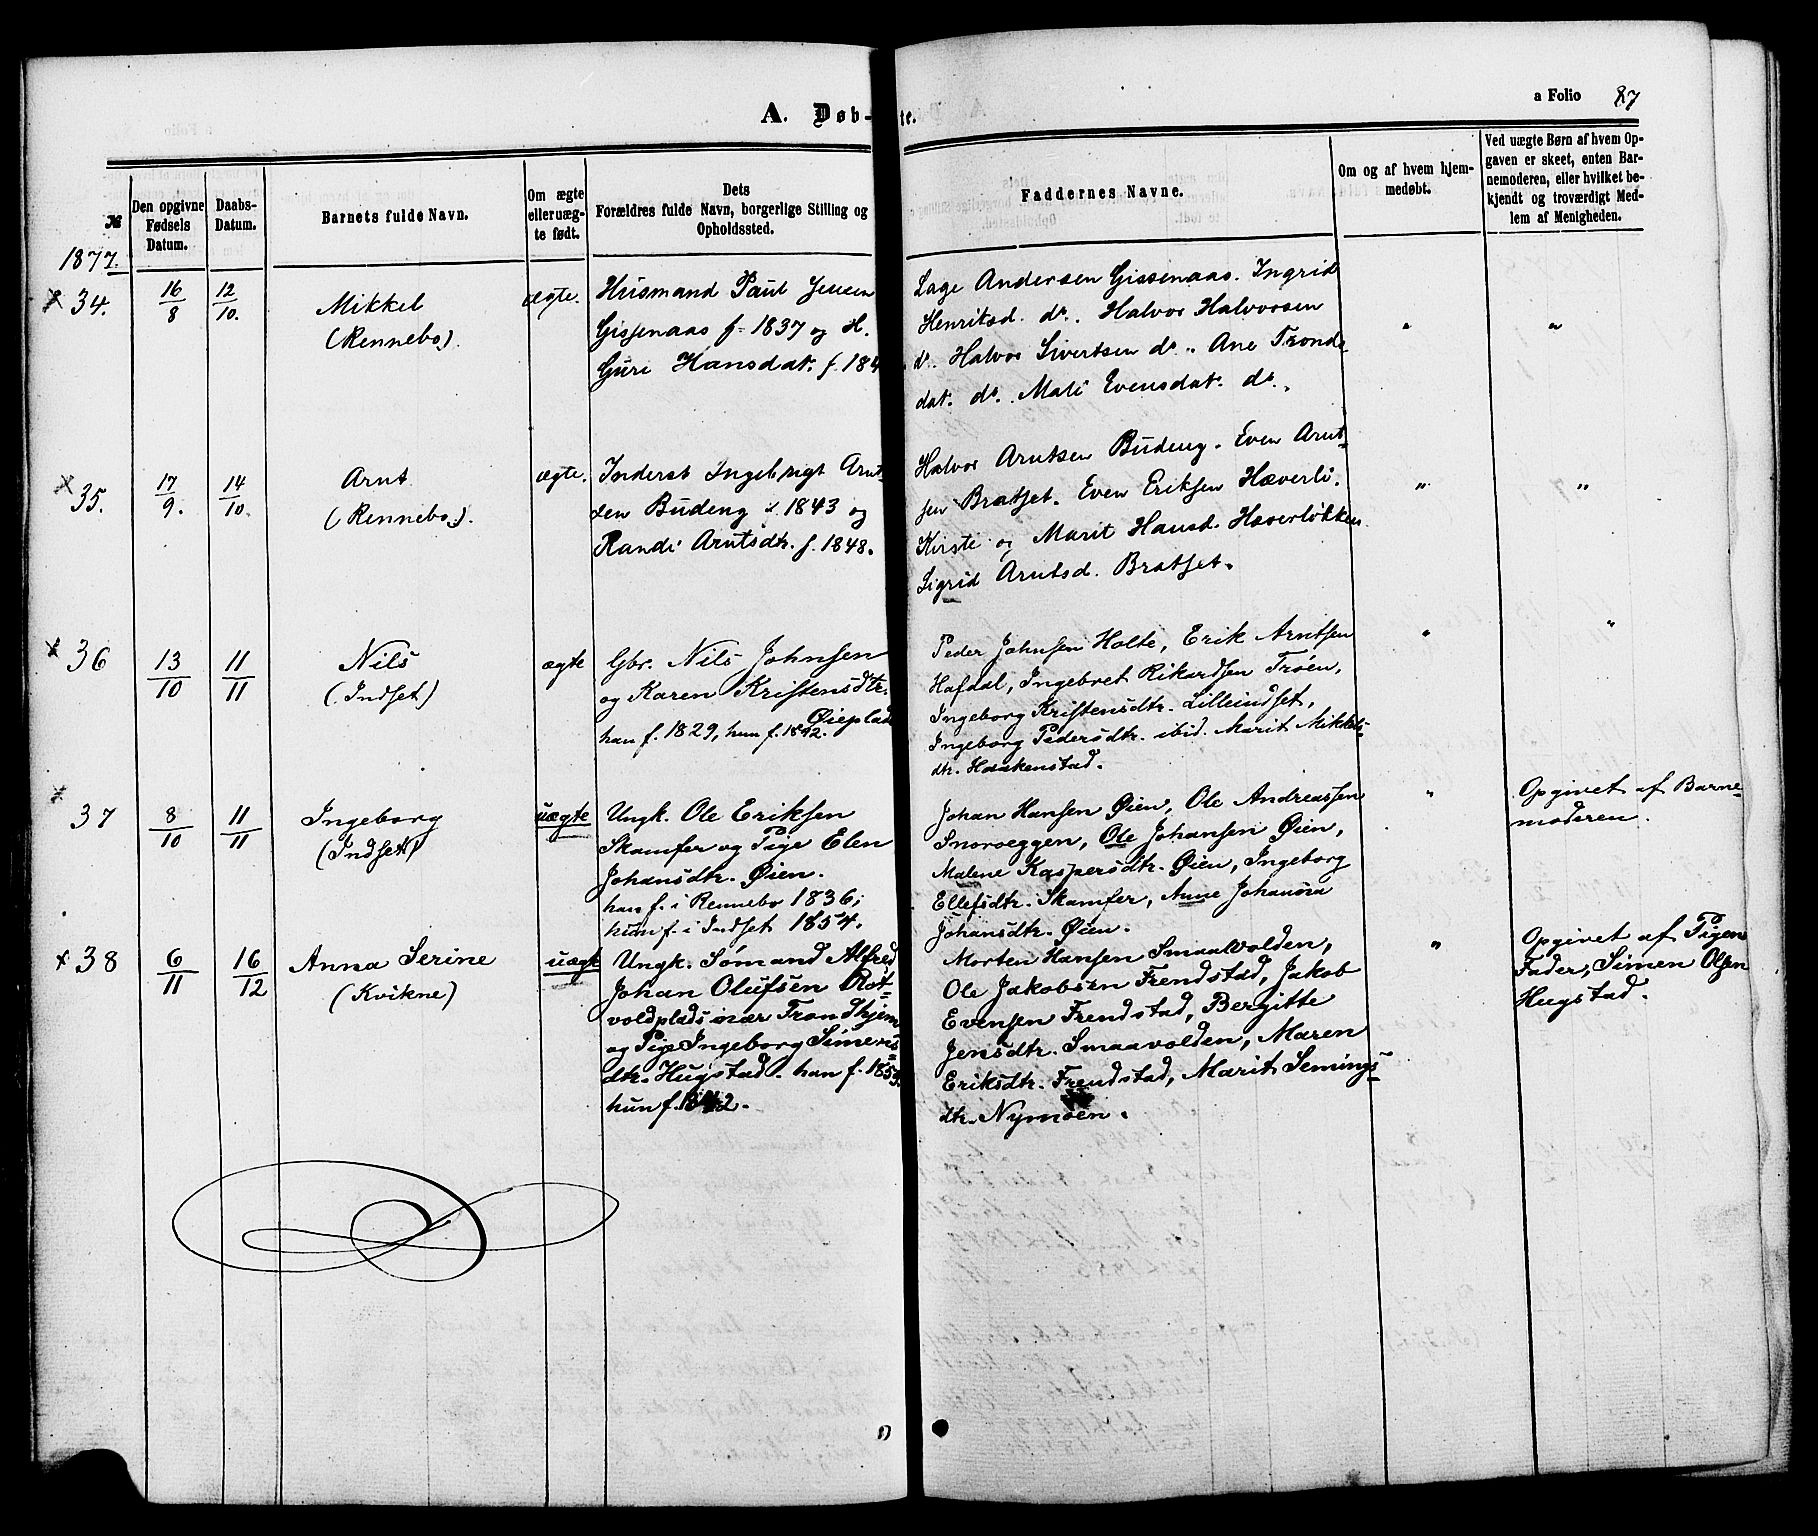 A. Døb-
te.
a Folio 87
№
Den opgivne Fødsels Datum.
Daabs-Datum.
Barnets fulde Navn.
Om ægte eller uæg-te født.
Dets Forældres fulde Navn, borgerlige Stilling og Opholdssted.
Faddernes Navne.
Om og af hvem hjem-medøbt.
Ved uægte Børn af hvem Op-gaven er skeet, enten Bar-nemoderen, eller hvilket be-kjendt og troværdigt Med-lem af Menigheden.
1877.
34.
16/8
12/10.
Mikkel
(Rennebo).
ægte.
Husmand Paul Jensen
Gissenaas f. 1837 og H.
Guri Hansdat. f. 184
Lage Andersen Gissenaas. Ingrid
Henriksd. do. Halvor Halvorsen
do. Halvor Sivertsen do. Ane Tronds
dat. do. Mali Evensdat. do.
"
"
35.
17/9.
14/10.
Arnt
(Rennebo).
ægte.
Inderst Ingebrigt Arnt-
sen Budeng f. 1843 og
Randi Arntsdtr. f. 1848.
Halvor Arntsen Budeng. Even Arnt-
sen Bratset. Even Eriksen Hæverlø.
Kirste og Marit Hansd. Hæverløkken
Sigrid Arntsd. Bratset.
"
"
36
13/10
11/11
Nils
(Indset)
ægte
Gbr. Nils Johnsen
og Karen Kristensdtr.
Øieplads
han f. 1829, hun f. 1842.
Peder Johnsen Holte, Erik Arntsen
Hafdal, Ingebret Rikardsen Trøen,
Ingeborg Kristensdtr. Lilleindset,
Ingeborg Pedersdtr. ibid. Marit Mikkels-
dtr. Haakenstad.
"
"
37
8/10
11/11
Ingeborg
(Indset)
uægte
Ungk. Ole Eriksen
Skamfer og Pige Elen
Johansdtr. Øien.
han f. i Rennebo 1836;
hun f. i Indset 1854.
Johan Hansen Øien, Ole Andreassen
Snoroeggen, Ole Johansen Øien,
Malene Kaspersdtr. Øien, Ingeborg
Ellefsdtr. Skamfer, Anne Johanna
Johansdtr. Øien.
"
Opgivet af Barne-
moderen.
38
6/11
16/12
Anna Serine
(Kvikne)
uægte
Ungk. Sømand Alfred
Johan Olufsen Rot-
voldplads nær Trondhjem
og Pige Ingeborg Simens-
dtr. Hugstad. han f. 1853.
hun f. 1842.
Morten Hansen Smaavolden,
Ole Jakobsen Frendstad, Jakob
Evensen Frendstad, Bergitte
Jensdtr. Smaavolden, Maren
Eriksdtr. Frendstad, Marit Semings-
dtr. Nymoen.
"
Opgivet af Pigens
Fader, Simen Olsen
Hugstad.